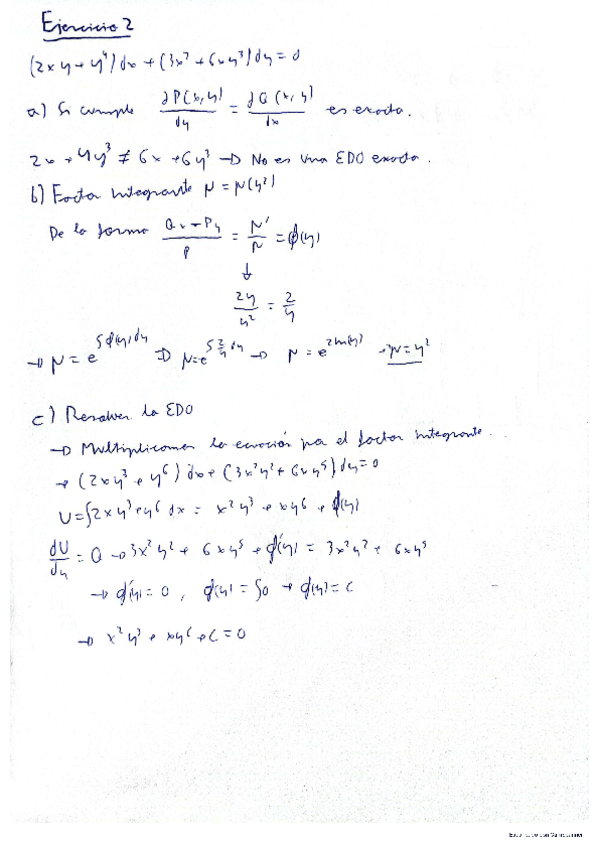 Ejercicio 2
(2xy + y⁴)dx + (3x² + 6xy³)dy = 0
a) Si cumple ∂P(x,y)/dy = ∂Q(x,y)/dx es exacta.
2x + 4y³ ≠ 6x + 6y³ → No es una EDO exacta.
b) Factor integrante μ = μ(y²)
De la forma (Qx - Py)/P = μ'/μ = φ(y)
↓
2y/y² = 2/y
→ μ = e^∫φ(y)dy ⇒ μ = e^∫2/y dy → μ = e^2ln(y) → μ = y²
c) Resolver la EDO
→ Multiplicamos la ecuación por el factor integrante.
→ (2xy³ + y⁶)dx + (3x²y² + 6xy⁵)dy = 0
U = ∫2xy³ + y⁶ dx = x²y³ + xy⁶ + φ(y)
dU/dy = Q → 3x²y² + 6xy⁵ + φ'(y) = 3x²y² + 6xy⁵
→ φ'(y) = 0, φ(y) = ∫0 → φ(y) = C
→ x²y³ + xy⁶ + C = 0